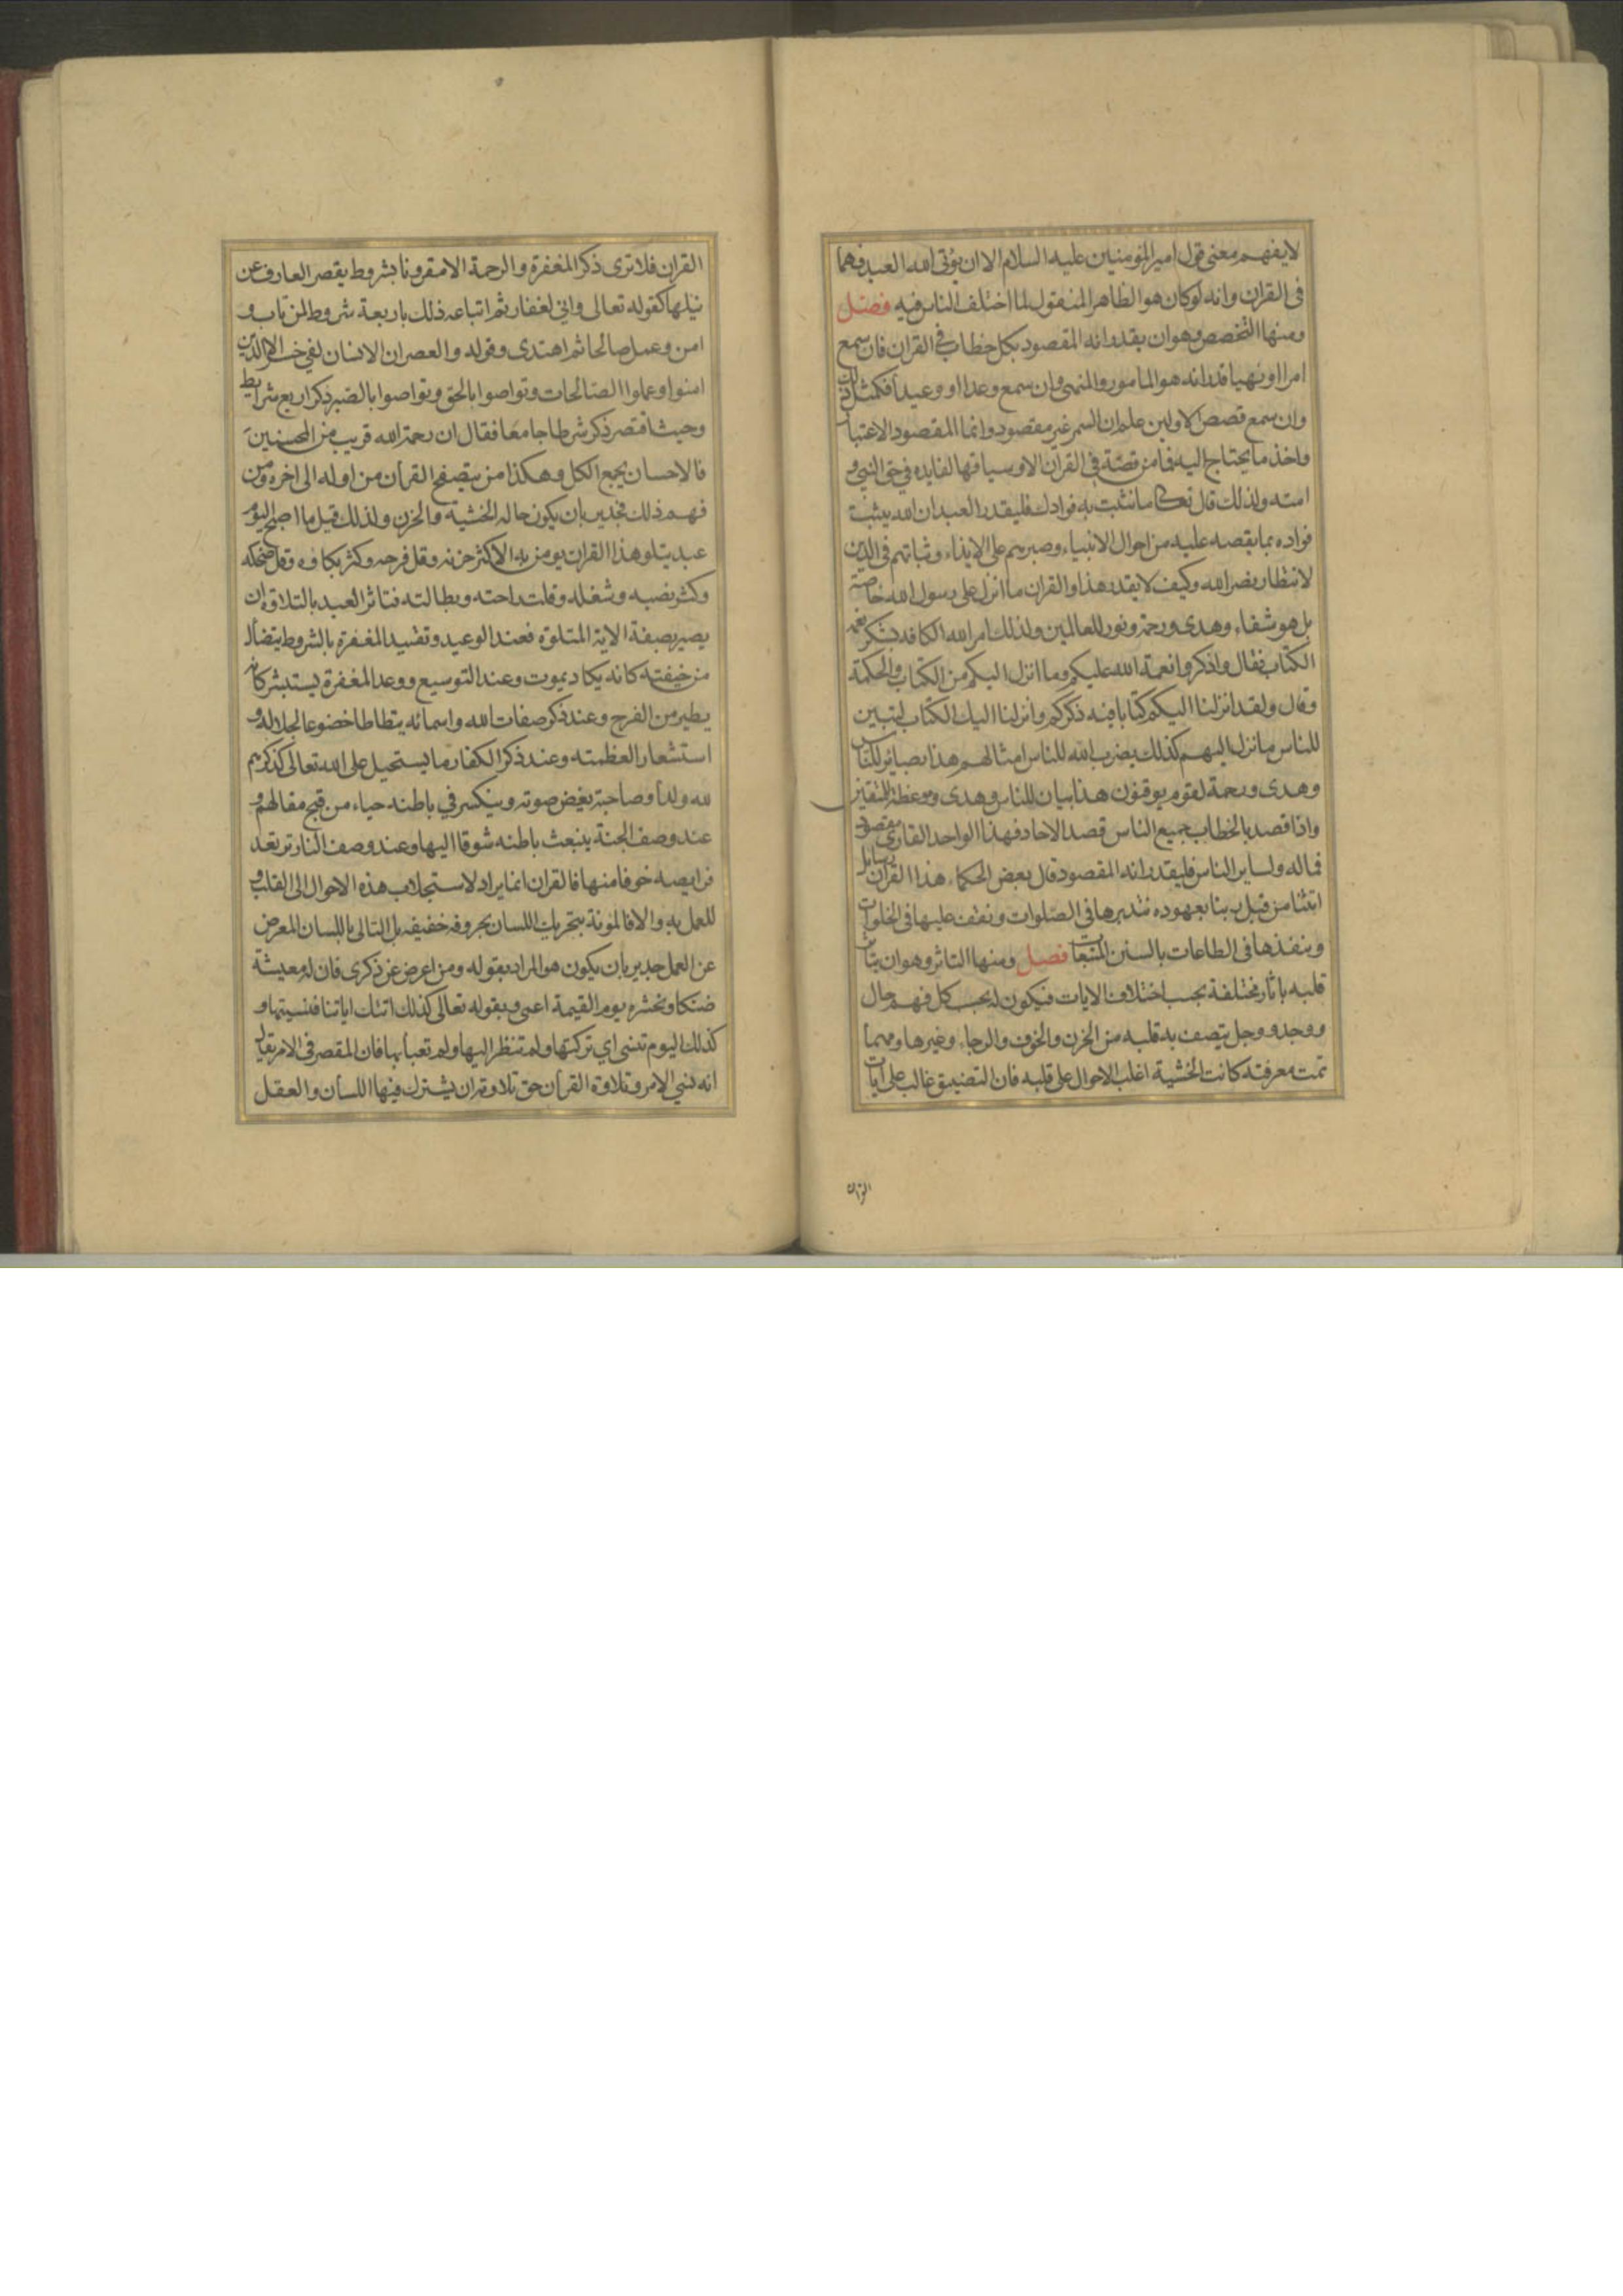 لايفهم معنى قول امير المؤمنين عليه السلام الا ان يؤتى الله العبد فهما
فى القران وانه لوكان هو الظاهر المنقول لما اختلف الناس فيه فصل
ومنها التخصص وهو ان يقدر انه المقصود بكل خطاب فى القران فان سمع
امرا او نهيا قدر انه هو المامور والمنهى وان سمع وعدا او وعيدا فكمثل ذلك
وان سمع قصص الاولين علم ان السمر غير مقصود وانما المقصود الاعتبار
واخذ ما يحتاج اليه فما من قصة فى القران الا وسياقها لفايده فى حق النبى و
امته ولذلك قال تعالى ما نثبت به فوادك فليقدر العبد ان الله يثبت
فواده بما يقصه عليه من احوال الانبياء وصبرهم على الايذاء وثباتهم فى الدين
لانتظار نصر الله وكيف لا يقدر هذا والقران ما انزل على رسول الله خاصة
بل هو شفاء وهدى ورحمة ونور للعالمين ولذلك امر الله الكافه بشكر نعمة
الكتاب فقال واذكروا نعمة الله عليكم وما انزل اليكم من الكتاب والحكمة
وقال ولقد انزلنا اليكم كتابا فيه ذكركم وانزلنا اليك الكتاب لتبين
للناس ما نزل اليهم كذلك يضرب الله للناس امثالهم هذا بصائر للناس
وهدى ورحمة لقوم يوقنون هذا بيان للناس وهدى وموعظة للمتقين
واذا قصد بالخطاب جميع الناس قصد الاحاد فهذا الواحد القارى مقصود
فماله ولساير الناس فليقدر انه المقصود قال بعض الحكماء هذا القران رسايل
اتتنا من قبل ربنا بعهوده نتدبرها فى الصلوات ونقف عليها فى الخلوات
وننفذها فى الطاعات بالسنن المتبعات فصل ومنها التاثر وهو ان يتاثر
قلبه باثار مختلفة بحسب اختلاف الايات فيكون له بحسب كل فهم حال
ووجد ووجل يتصف به قلبه من الحزن والخوف والرجاء وغيرها ومهما
تمت معرفته كانت الخشية اغلب الاحوال على قلبه فان التضييق غالب على ايات
القران
القران فلا ترى ذكر المغفرة والرحمة الا مقرونا بشروط يقصر العارف عن
نيلها كقوله تعالى وانى لغفار ثم اتباعه ذلك باربعة شروط لمن تاب و
امن وعمل صالحا ثم اهتدى وقوله والعصر ان الانسان لفى خسر الا الذين
امنوا وعملوا الصالحات وتواصوا بالحق وتواصوا بالصبر ذكر اربع شرايط
وحيث اقتصر ذكر شرطا جامعا فقال ان رحمة الله قريب من المحسنين
فالاحسان يجمع الكل وهكذا من يتصفح القران من اوله الى اخره ومن
فهم ذلك فجدير بان يكون حاله الخشية والحزن ولذلك قيل ما اصبح اليوم
عبد يتلو هذا القران يومن به الا كثر حزنه وقل فرحه وكثر بكاوه وقل ضحكه
وكثر نصبه وشغله وقلت راحته وبطالته فتاثر العبد بالتلاوة ان
يصير بصفة الاية المتلوة فعند الوعيد وتقييد المغفرة بالشروط يتضأل
من خيفته كانه يكاد يموت وعند التوسيع ووعد المغفرة يستبشر كانه
يطير من الفرح وعند ذكر صفات الله واسمائه يتطاطا خضوعا لجلاله و
استشعارا لعظمته وعند ذكر الكفار ما يستحيل على الله تعالى كذكرهم
لله ولدا وصاحبة يغض صوته وينكسر في باطنه حياء من قبح مقالهم و
عند وصف الجنة ينبعث باطنه شوقا اليها وعند وصف النار ترتعد
فرايصه خوفا منها فالقران انما يراد لاستجلاب هذه الاحوال الى القلب و
للعمل به والا فالمونة بتحريك اللسان بحروفه خفيفه بل التالى باللسان المعرض
عن العمل جدير بان يكون هو المراد بقوله ومن اعرض عن ذكرى فان له معيشة
ضنكا ونحشره يوم القيمة اعمى وبقوله تعالى كذلك اتتك اياتنا فنسيتها و
كذلك اليوم تنسى اي تركتها ولم تنظر اليها ولم تعبأ بها فان المقصر فى الامر يقال
انه نسي الامر وتلاوة القران حق تلاوته ان يشترك فيها اللسان والعقل